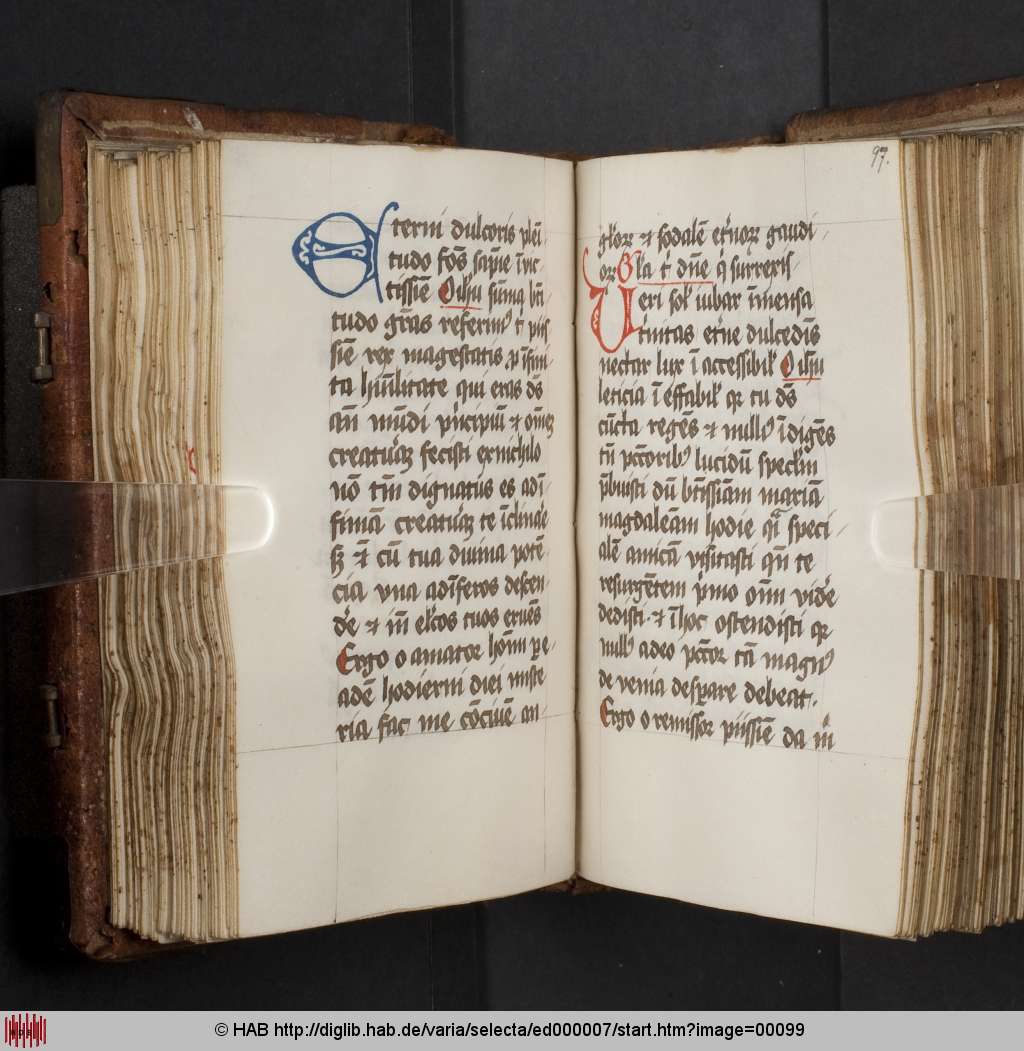 Eterni dulcoris pleni
tudo fōs sapīe īvic
tissīe O ihu sūma bt̄i
tudo gr̄as referimꝰ t͛ piis
sīe rex magestatis ꝓ īfini
ta hūilitate qui eras dꝰ
an̄ mūdi pͥncipiū ⁊ om̄ez
creatuͣz fecisti exnichilo
nō tm̄ dignatus es ad ī
fimā creatuͣz te īclinaͤe
sꝫ ⁊ cū tua diuina potē
cia vna ad īferos descen
dͤe ⁊ in̄ elc̄os tuos eruēs
Ergo o amator hoīm ꝑ e
adē hodierni diei miste
ria fac me cōciuē an
97.
glor̄ ⁊ sodalē etͥnor̄ gaudi
or̄ Gla tͥ dn̄e qͥ surrexis
Ueri sol iubar īmensa
vͥnitas etͥne dulcedīs
nectar lux ī accessibil O ihu
leticia ī effabil qr tu dꝰ
cūcta regēs ⁊ nullꝰ īdigēs
tū pctōribꝰ lucidū speclm̄
p̄buisti dū btīssimā mariā
magdalenām hodie qͣ speci
alē amicā visitasti qn̄ te
resurgētem pͥmo om̄ vidͤe
dedisti ⁊ ī hoc ostendisti qr
nullꝰ adeo pctōr tā magnꝰ
de venia despare debeat.
Ergo o remissor piissīe da m̄
© HAB http://diglib.hab.de/varia/selecta/ed000007/start.htm?image=00099